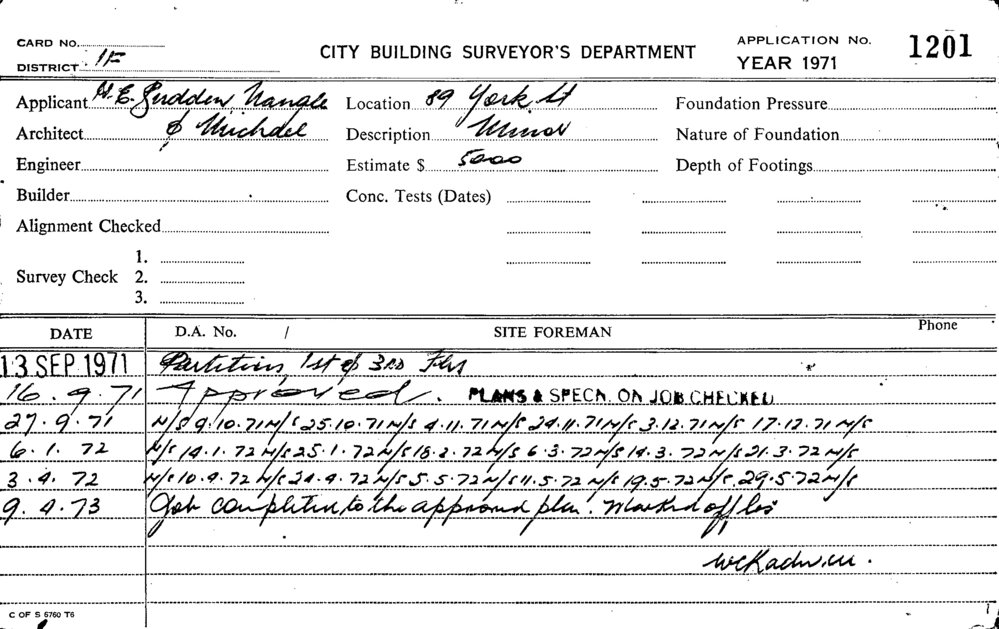 CARD No.
DISTRICT 1F
CITY BUILDING SURVEYOR'S DEPARTMENT
APPLICATION No. 1201
YEAR 1971
Applicant H. E. Rudder, Nangle Location 89 York St Foundation Pressure
Architect & Michael Description Minor Nature of Foundation
Engineer Estimate $ 5000 Depth of Footings
Builder Conc. Tests (Dates)
Alignment Checked
1.
Survey Check 2.
3.
DATE D.A. No. / SITE FOREMAN Phone
13 SEP 1971 Partitions 1st & 3RD Flrs
16.9.71 Approved. PLANS & SPECN. ON JOB CHECKED
27.9.71 N/S 9.10.71 N/S 25.10.71 N/S 4.11.71 N/S 24.11.71 N/S 3.12.71 N/S 17.12.71 N/S
6.1.72 N/S 14.1.72 N/S 25.1.72 N/S 18.2.72 N/S 6.3.72 N/S 14.3.72 N/S 21.3.72 N/S
3.4.72 N/S 10.4.72 N/S 24.4.72 N/S 5.5.72 N/S 11.5.72 N/S 19.5.72 N/S 29.5.72 N/S
9.4.73 Job completed to the approved plan. Marked off
C OF S 6760 T6